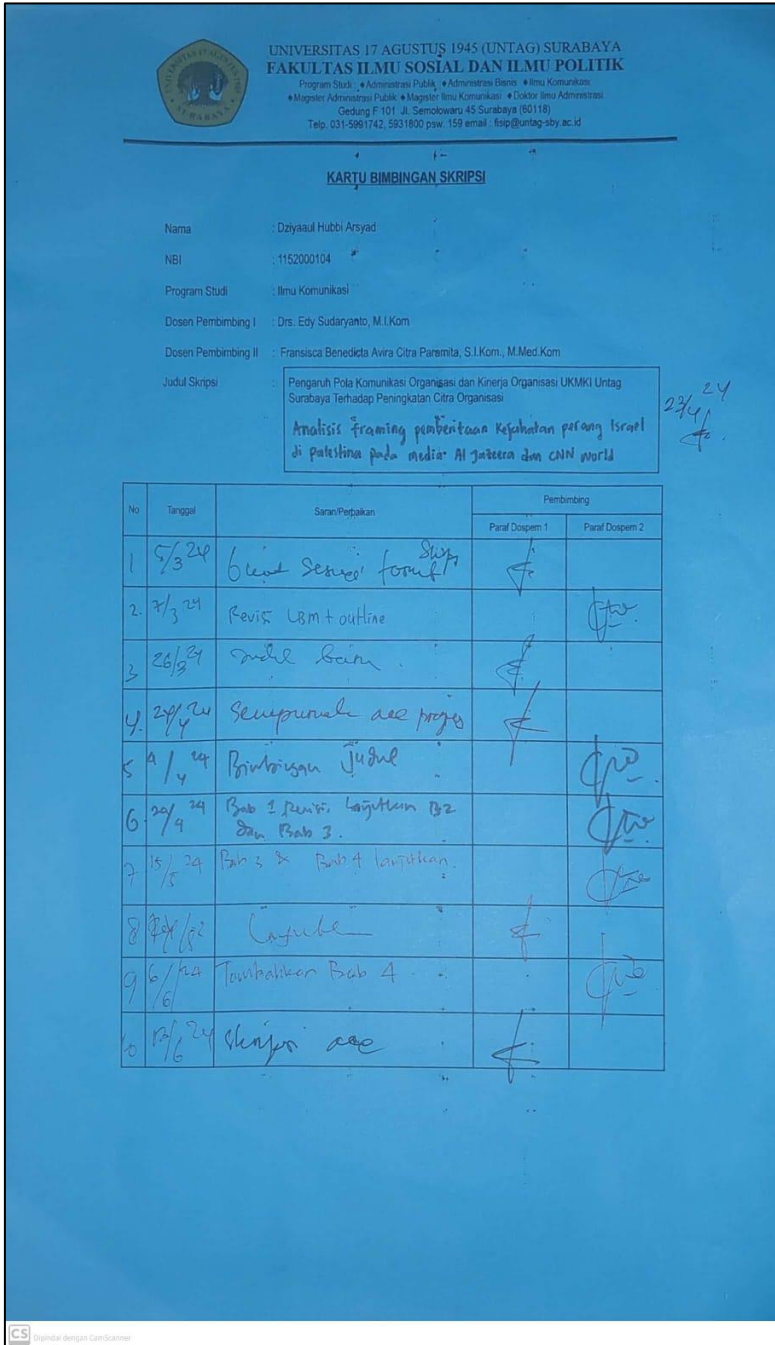 UNIVERSITAS 17 AGUSTUS 1945 (UNTAG) SURABAYA
FAKULTAS ILMU SOSIAL DAN ILMU POLITIK
Program Studi : ♦Administrasi Publik ♦Administrasi Bisnis ♦Ilmu Komunikasi
♦Magister Administrasi Publik ♦Magister Ilmu Komunikasi ♦Doktor Ilmu Administrasi
Gedung F 101 Jl. Semolowaru 45 Surabaya (60118)
Telp. 031-5991742, 5931800 psw. 159 email : fisip@untag-sby.ac.id
KARTU BIMBINGAN SKRIPSI
Nama : Dziyaaul Hubbi Arsyad
NBI : 1152000104
Program Studi : Ilmu Komunikasi
Dosen Pembimbing I : Drs. Edy Sudaryanto, M.I.Kom
Dosen Pembimbing II : Fransisca Benedicta Avira Citra Paramita, S.I.Kom., M.Med.Kom
Judul Skripsi : Pengaruh Pola Komunikasi Organisasi dan Kinerja Organisasi UKMKI Untag
Surabaya Terhadap Peningkatan Citra Organisasi
Analisis framing pemberitaan kejahatan perang Israel
di palestina pada media Al Jazeera dan CNN World
23/4 24
No Tanggal Saran/Perbaikan Pembimbing
Paraf Dospem 1 Paraf Dospem 2
1 5/3 24
2. 7/3 24 Revisi LBM + outline
3 26/3 24
4. 24/4 24 acc
5 4/4 24 Bimbingan Judul
6. 29/4 24 Bab 1 Revisi, Lanjutkan B2
dan Bab 3.
7 15/5 24 Bab 3 & Bab 4 lanjutkan.
8
9 6/6 24 Tambahkan Bab 4
10 13/6 24 Skripsi acc
CS Dipindai dengan CamScanner